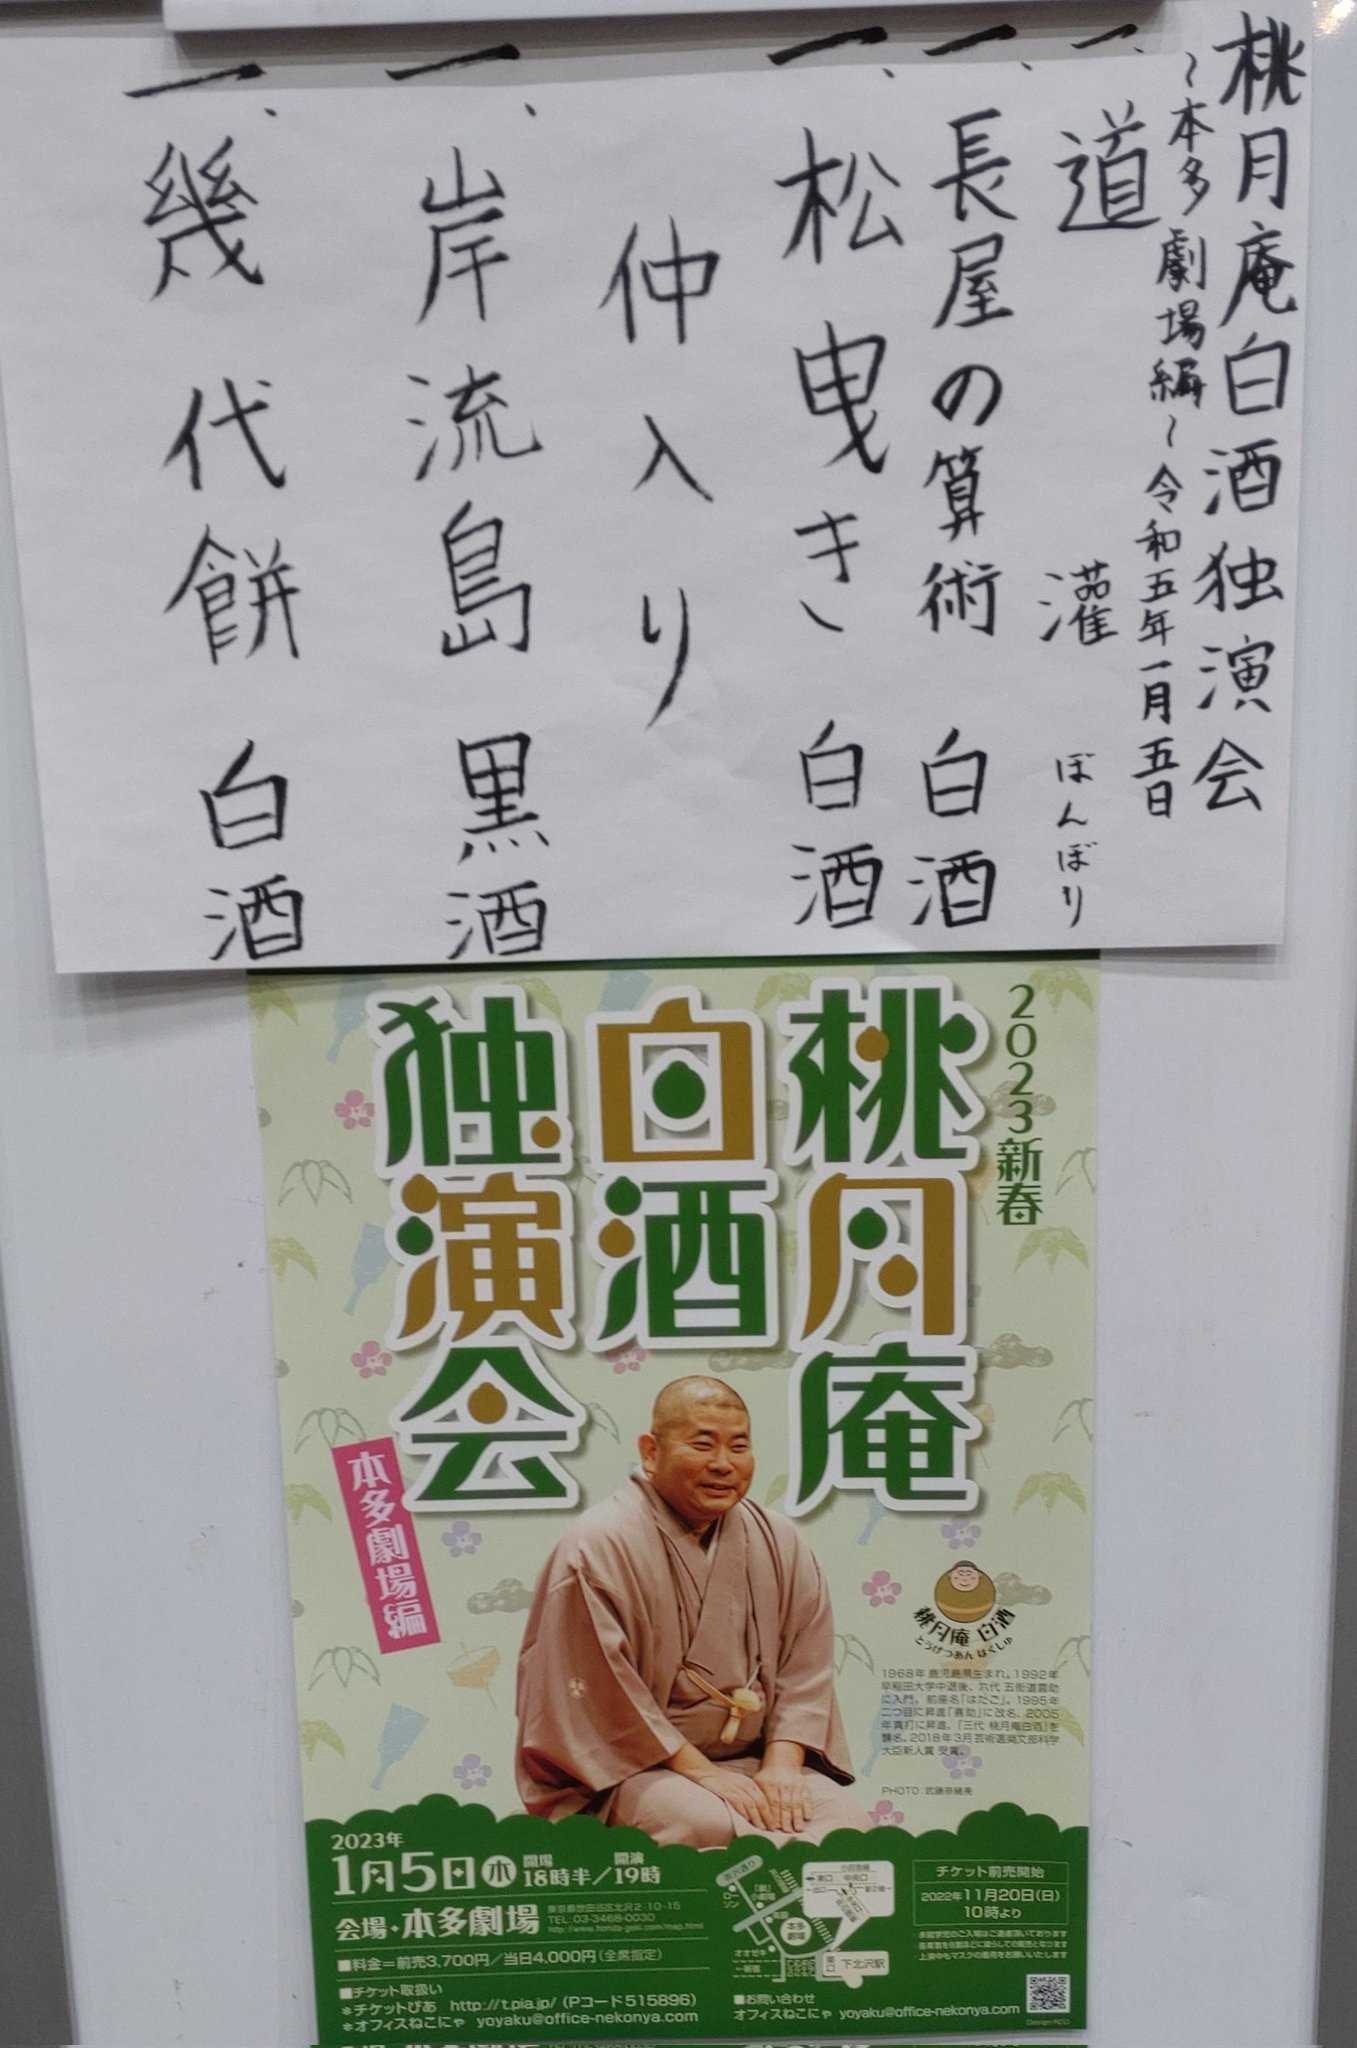 桃月庵白酒独演会
～本多劇場編～令和五年一月五日
一、道灌 ぼんぼり
一、長屋の算術 白酒
一、松曳き 白酒
仲入り
一、岸流島 黒酒
一、幾代餅 白酒
2023新春
桃月庵
白酒
独演会
本多劇場編
桃月庵 白酒
とうげつあん はくしゅ
1968年 鹿児島県生まれ。1992年
早稲田大学中退後、六代 五街道雲助
に入門。前座名「はたご」。1995年
二つ目に昇進「喜助」に改名、2005
年真打に昇進、「三代 桃月庵白酒」を
襲名。2018年3月芸術選奨文部科学
大臣新人賞 受賞。
PHOTO：武藤奈緒美
2023年
1月5日㊍ 開場18時半／開演19時
会場・本多劇場
東京都世田谷区北沢2-10-15
TEL：03-3468-0030
■料金＝前売3,700円／当日4,000円（全席指定）
■チケット取扱い
＊チケットぴあ http://t.pia.jp/（Pコード515896）
＊オフィスねこにゃ yoyaku@office-nekonya.com
茶沢通り
ローソン
オオゼキ
本多劇場
下北沢駅
チケット前売開始
2022年11月20日（日）
10時より
未就学児のご入場はご遠慮頂いております
上演中もマスクの着用をお願いいたします
■お問い合わせ
オフィスねこにゃ yoyaku@office-nekonya.com